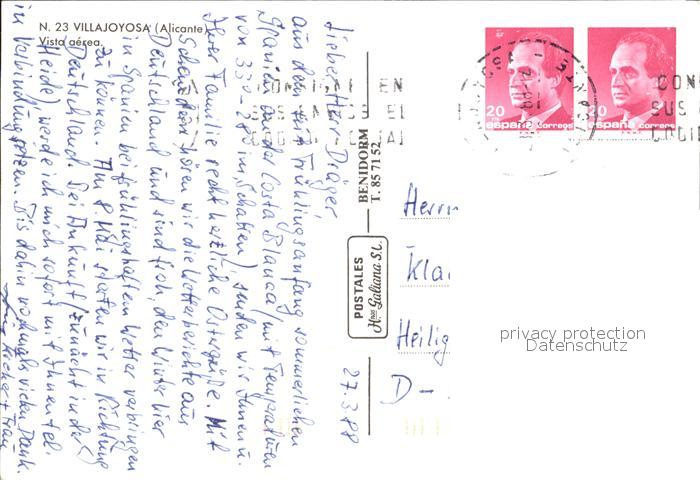 N. 23 VILLAJOYOSA (Alicante)
Vista aérea.
27.3.88
Lieber Herr Dräger
aus dem seit Frühlingsanfang sommerlichen
Spanien an der Costa Blanca (mit Temperaturen
von 33°-38° im Schatten), senden wir Ihnen u.
Ihrer Familie recht herzliche Ostergrüße. Mit
hören wir die Wetterberichte aus
Deutschland und sind froh, den Winter hier
in Spanien bei frühlingshaften Wetter verbringen
zu können. Am 8. Mai starten wir in Richtung
Deutschland. Bei Ankunft (zunächst in der
Heide) werde ich mich sofort mit Ihnen tel.
in Verbindung setzen. Bis dahin nochmals vielen Dank.
+ Frau
BENIDORM
T. 85 71 52
POSTALES
Hnos Galiana S.L.
20
españa correos
20
españa correos
Herrn
Kla
Heilig
D-
privacy protection
Datenschutz